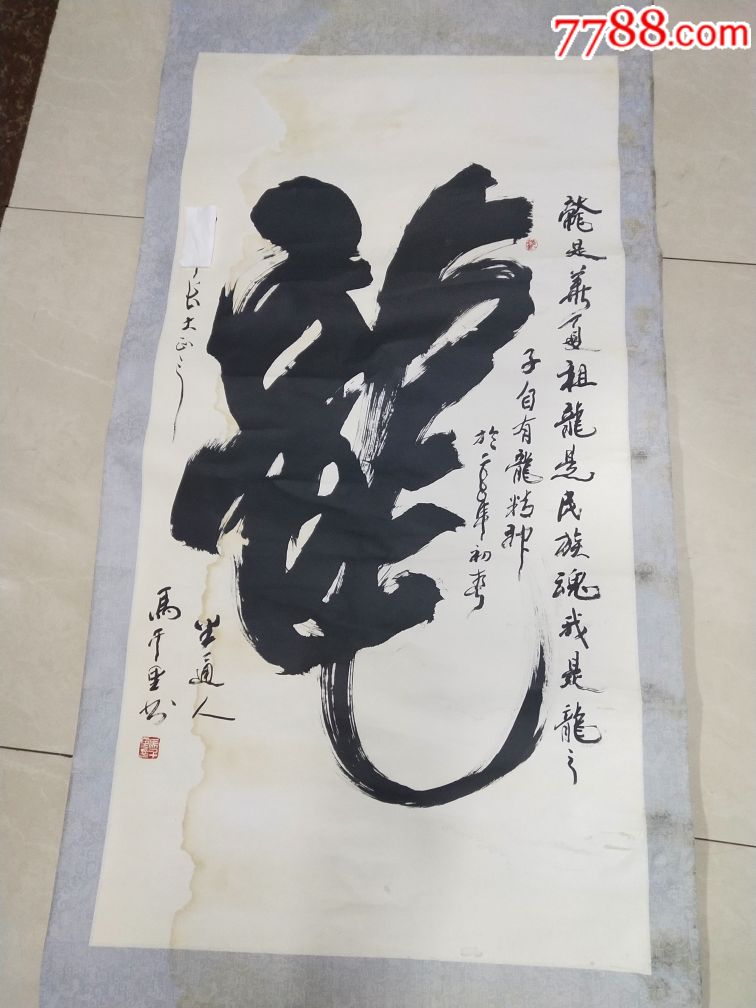 7788.com
龍
龍是華夏祖龍是民族魂我是龍之
子自有龍精神
於二〇〇〇年初春
长大正之
坐通人
馬千里书